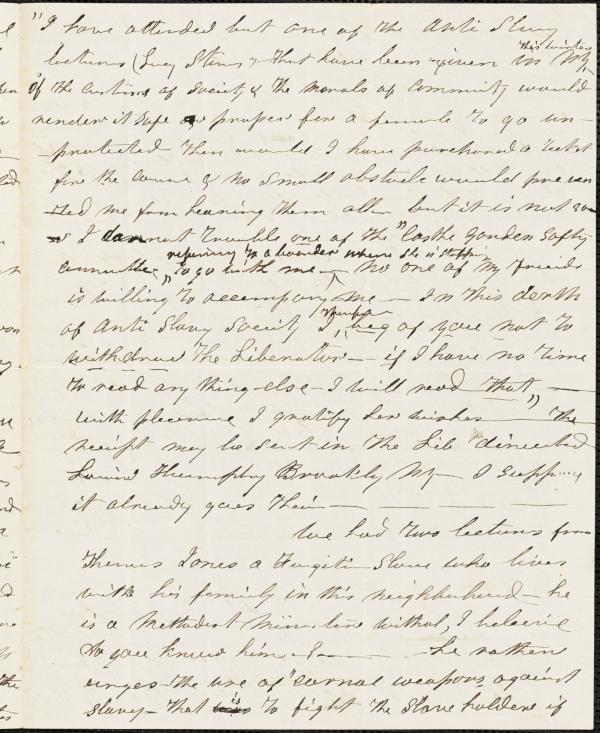 "I have attended but one of the Anti Slavery
lectures (Lucy Stone's) that have been given this winter in NY,
If the customs of society & the morals of community would
render it safe or proper for a female to go un-
-protected then would I have purchased a ticket
for the course & no small obstacle would preven
ted me from hearing them all but it is not so
I cannot trouble one of the "Castle Garden Safety
committee" referring to a boarder where she is stopping
to go with me — no one of my friends
is willing to accompany me — In this dearth
of Anti Slavery Society I, therefore beg of you not to
withdraw The Liberator — if I have no time
to read any thing else I will read that" —
with pleasure I gratify her wishes — The
receipt may be sent in the Lib directed
Humphry Brooklyn NY — I suppose
it already goes there —
We had two lectures from
Thomas Jones a Fugitive Slave who lives
with his family in this neighborhood — he
is a Methodist Minister withal, I believe
do you know him? — he rather
urges the use of "carnal weapons against
slavery — that is to fight the Slave holders if